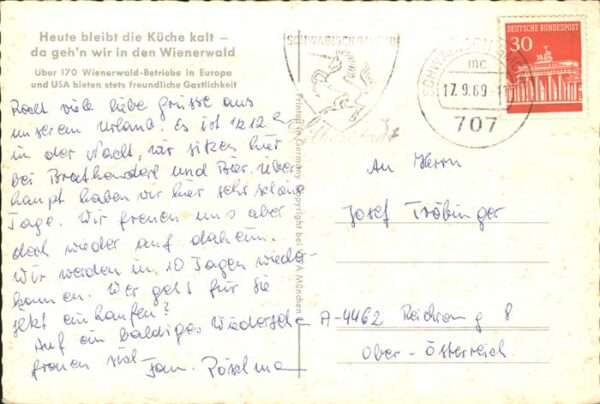 Heute bleibt die Küche kalt –
da geh'n wir in den Wienerwald
Über 170 Wienerwald-Betriebe in Europa
und USA bieten stets freundliche Gastlichkeit
Recht viele liebe Grüsse aus
unserem Urlaub. Es ist 12
in der Nacht, wir sitzen hier
bei Brathenderl und Bier. Über
haupt haben wir hier sehr schöne
Tage. Wir freuen uns aber
doch wieder auf daheim.
Wir werden in 10 Tagen wieder
kommen. Wer geht für Sie
jetzt einkaufen?
Auf ein baldiges Wiedersehn
freuen sich Fam. Pöschma
Printed in Germany Copyright bei München
DEUTSCHE BUNDESPOST
30
SCHWÄBISCH GMÜND
mc
17.9.69
707
An Herrn
Josef Tröbinger
A-4462 Reichraming 8
Ober-Österreich